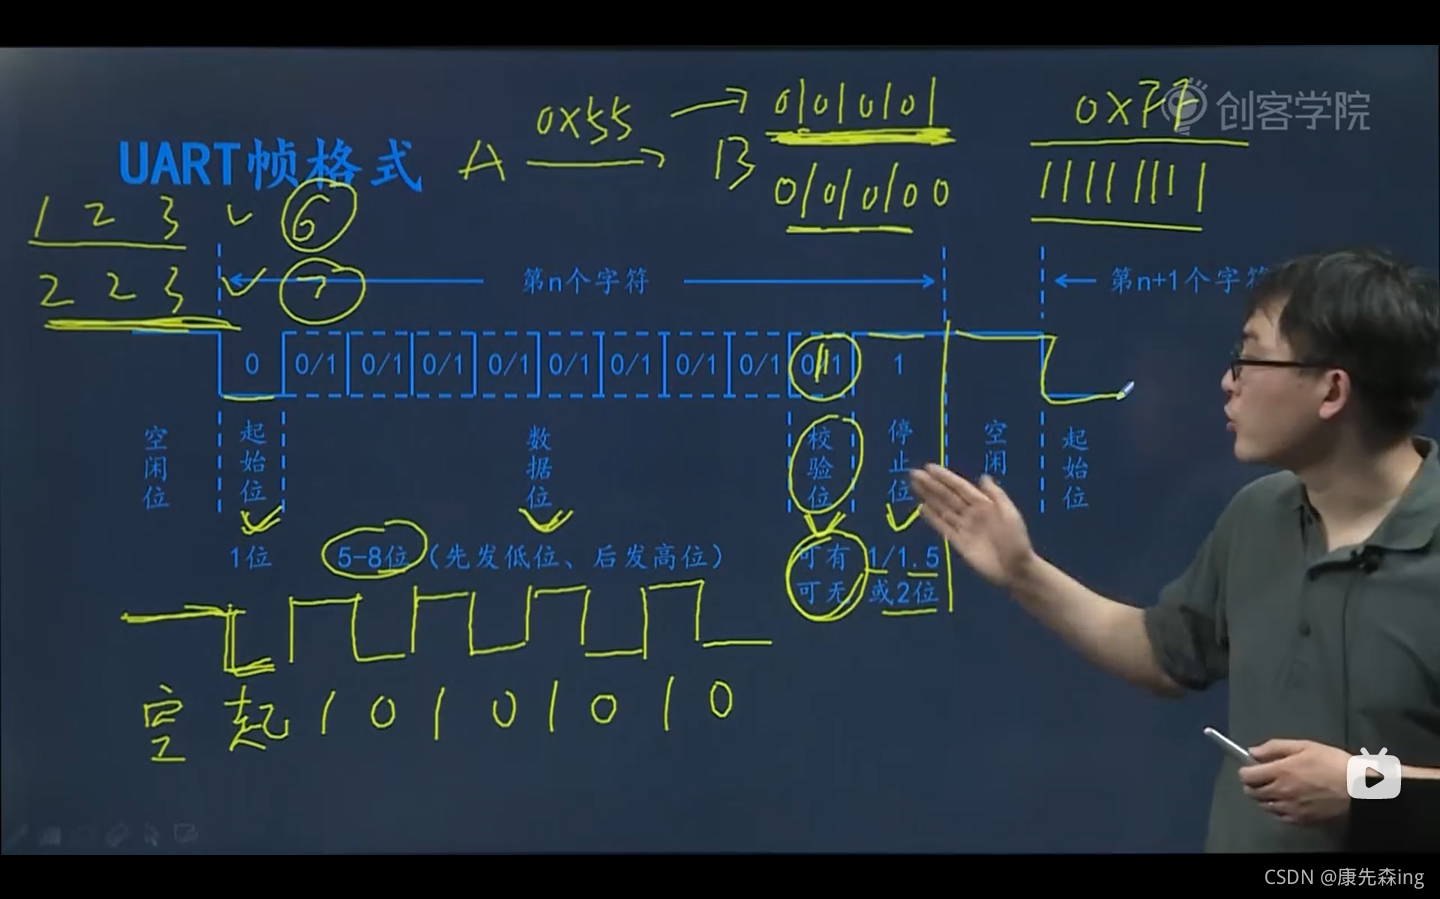 创客学院
0x55
01010101
0xFF
UART帧格式
A
B
01010100
11111111
1 2 3 6
2 2 3 7
第n个字符
第n+1个字符
0 0/1 0/1 0/1 0/1 0/1 0/1 0/1 0/1 0/1 1
空闲位 起始位 数据位 校验位 停止位 空闲 起始位
1位 5-8位(先发低位、后发高位) 可有可无 1/1.5或2位
空 起 1 0 1 0 1 0 1 0
CSDN @康先森ing